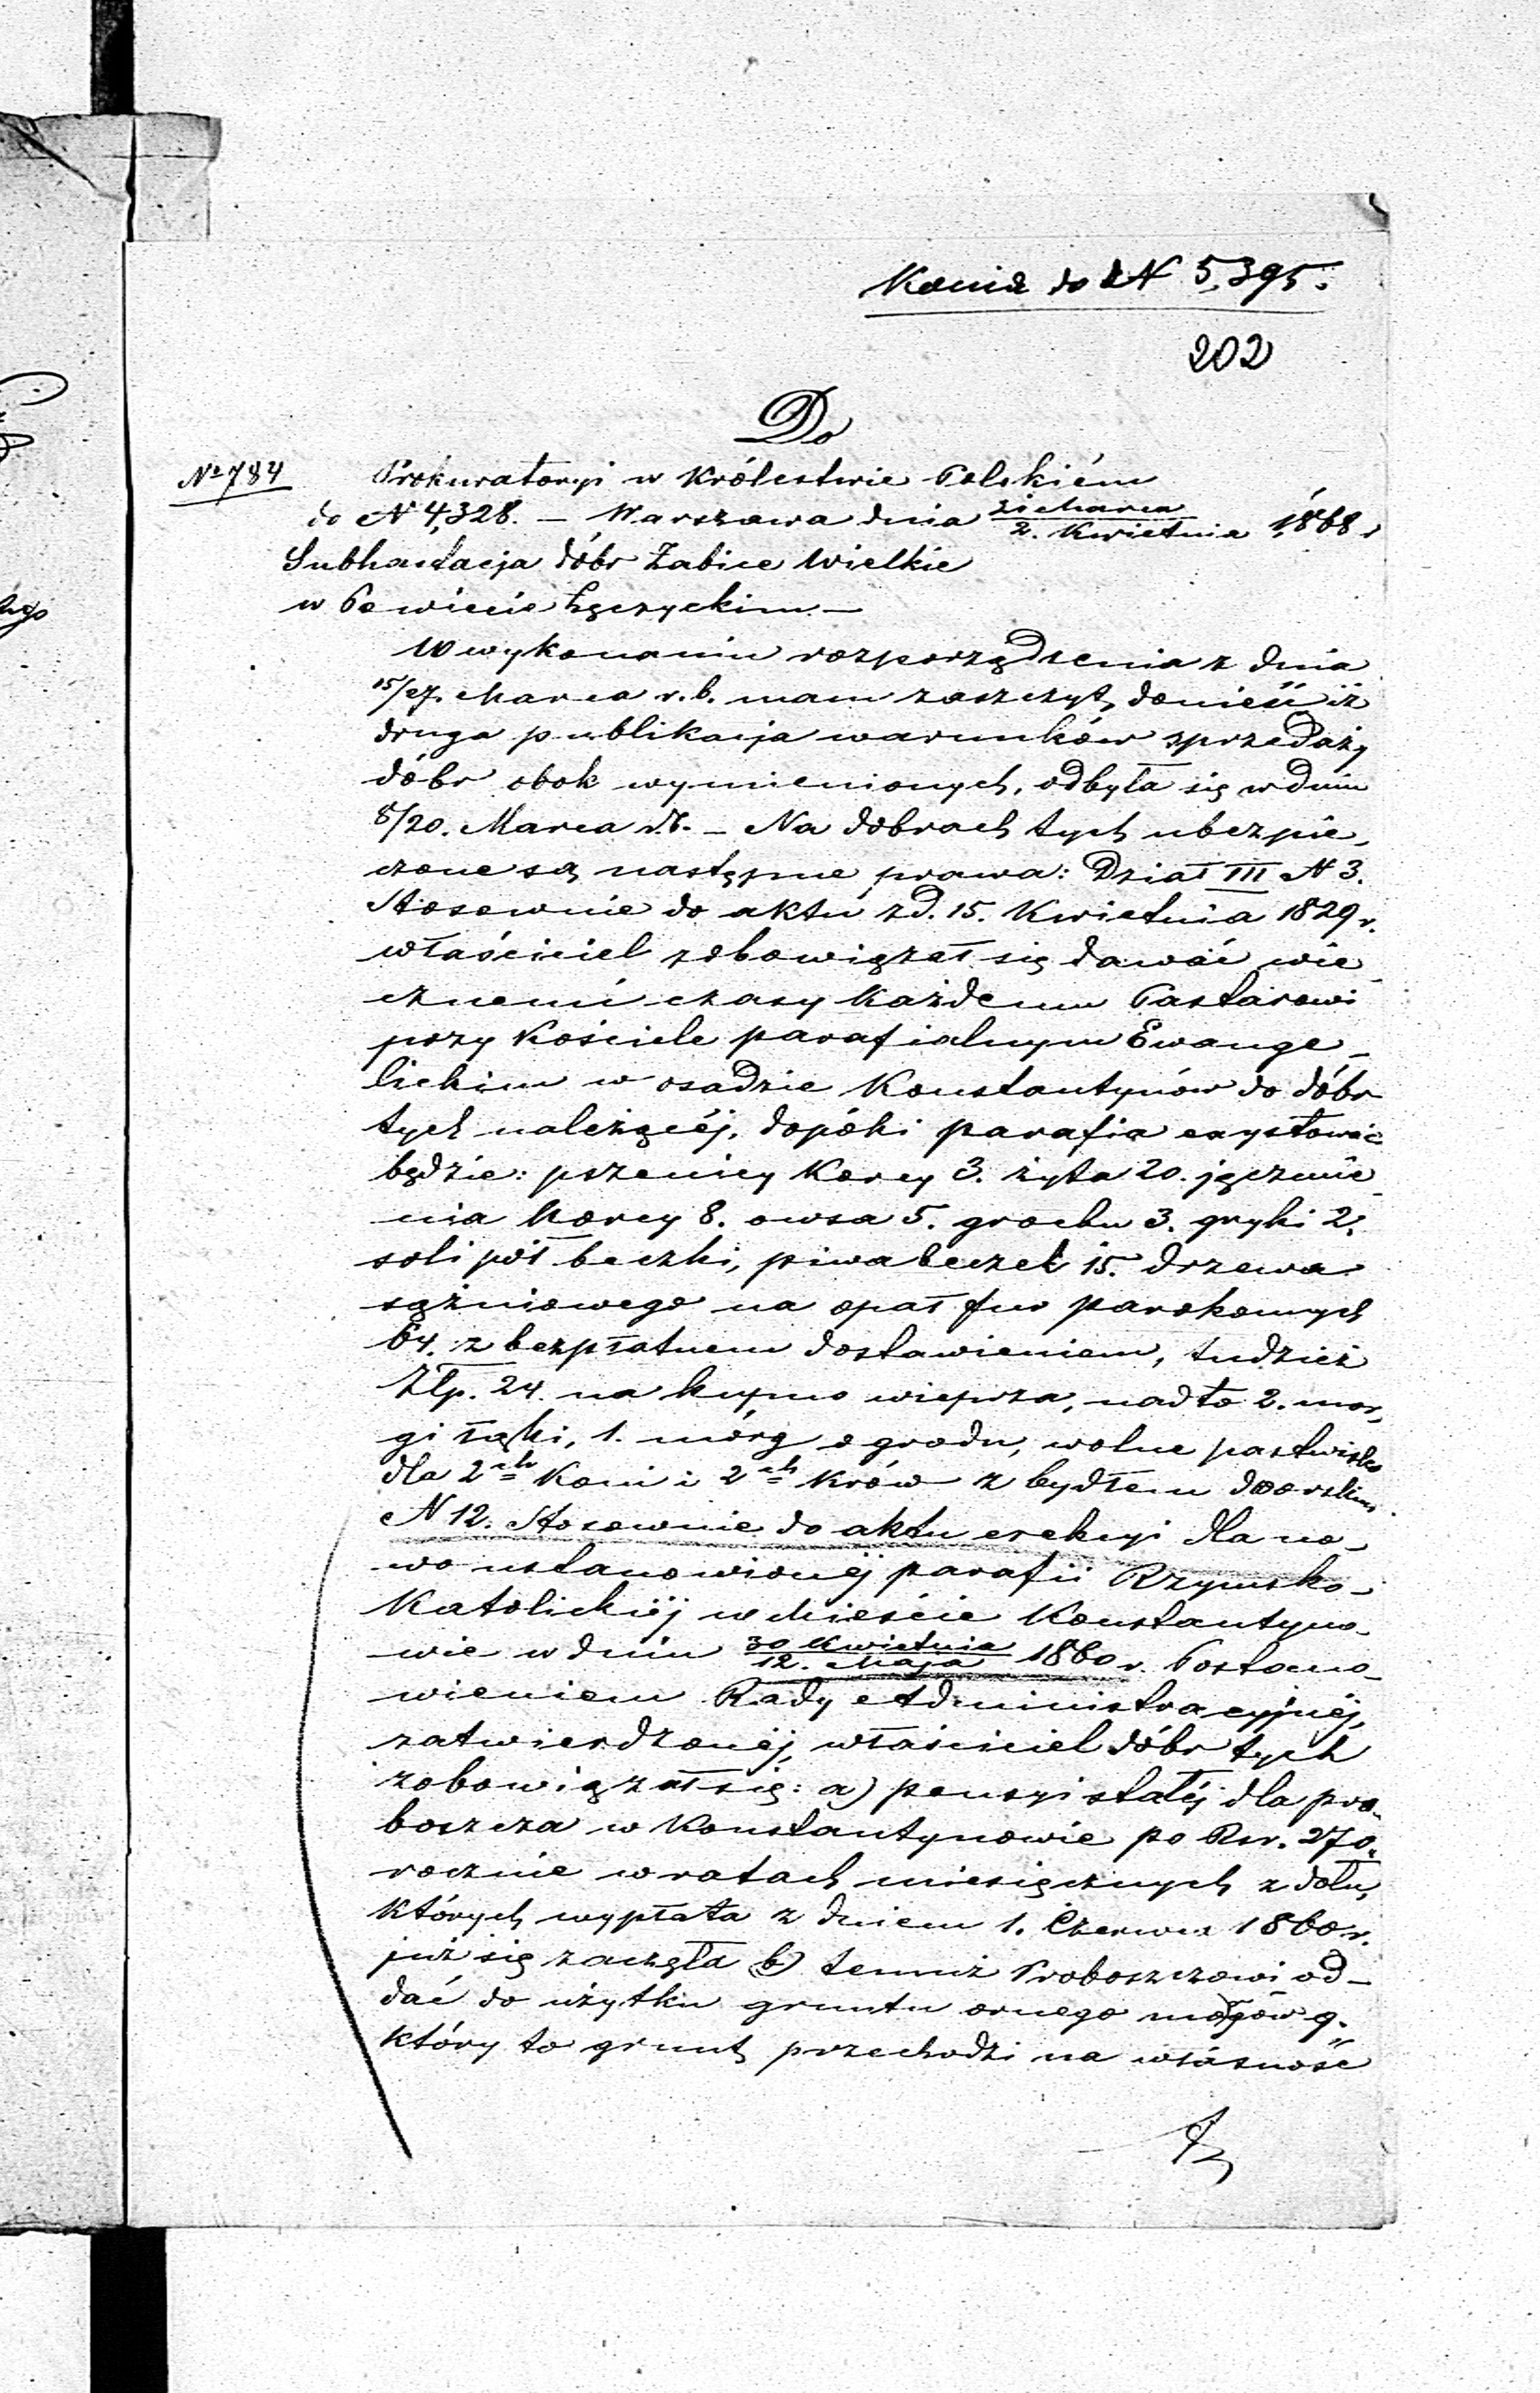 Kopia do N 5,395.
202
Do
Nº 784
Prokuratoryi w Królestwie Polskiém
do N 4,328. – Warszawa dnia 21 Marca / 2. Kwietnia 1868 r
Subhastacja dóbr Żabice Wielkie
w Powiecie Łęczyckim. –
W wykonaniu rozporządzenia z dnia
15/27. Marca r. b. mam zaszczyt donieść iż
druga publikacja warunków sprzedaży
dóbr obok wymienionych, odbyła się w dniu
8/20. Marca r. b. – Na dobrach tych ubezpie-
czone są następne prawa: Dział III N 3.
Stosownie do aktu z d. 15. Kwietnia 1829 r.
właściciel zobowiązał się dawać wie-
cznemi czasy każdemu Pastorowi
przy Kościele parafialnym Ewange-
lickim w osadzie Konstantynów do dóbr
tych należącéj, dopóki parafia exystować
będzie: pszenicy Korcy 3. żyta 20. jęczmie-
nia Korcy 8. owsa 5. grochu 3. gryki 2.
soli pół beczki, piwa beczek 15. drzewa
sążniowego na opał fur parokonnych
64. z bezpłatnem dostawieniem, tudzież
Złp. 24. na kupno wieprza, nadto 2. mor-
gi łąki, 1. mórg ogrodu, wolne pastwisko
dla 2ch Koni i 2ch Krów z bydłem dworskim.
N 12. Stosownie do aktu erekcyi dla no-
wo ustanowionéj parafii Rzymsko-
Katolickiéj w Mieście Konstantyno-
wie w dniu 30 Kwietnia / 12. Maja 1860 r. Postano-
wieniem Rady Administracyjnéj
zatwierdzonéj, właściciel dóbr tych
zobowiązał się: a) pensyi stałéj dla pro-
boszcza w Konstantynowie po Rsr. 270.
rocznie w ratach miesięcznych z dołu,
których wypłata z dniem 1. Czerwca 1860 r.
już się zaczęła b) temuż Proboszczowi od-
dać do użytku gruntu ornego morgów 9.
który to grunt przechodzi na własność